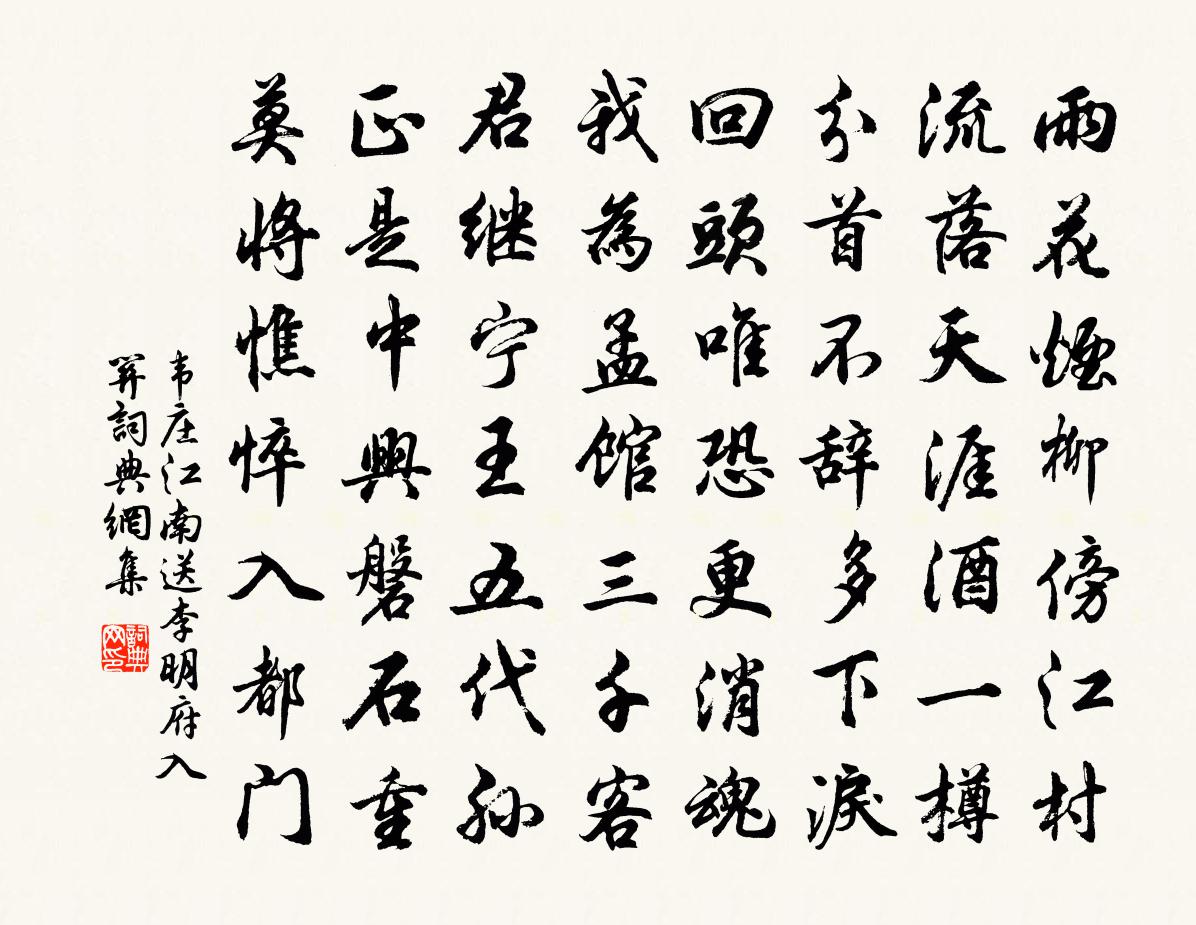 雨花煙柳傍江村
流落天涯酒一樽
分首不辞多下淚
回頭唯恐更消魂
我為孟館三千客
君继宁王五代孙
正是中興磐石重
莫將憔悴入都门
韦庄江南送李明府入
關詞典網集
詞典网印